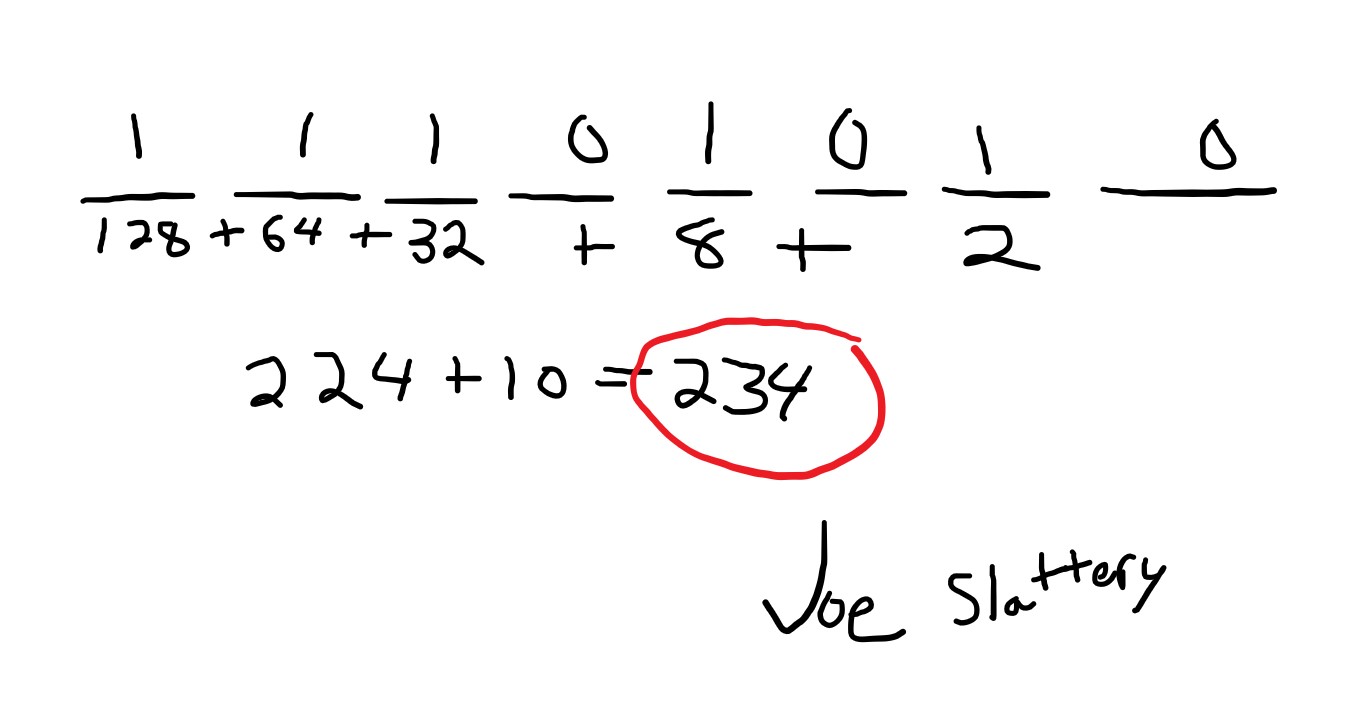 1 1 1 0 1 0 1 0
128 + 64 + 32 + 8 + 2
224 + 10 = 234
Joe Slattery